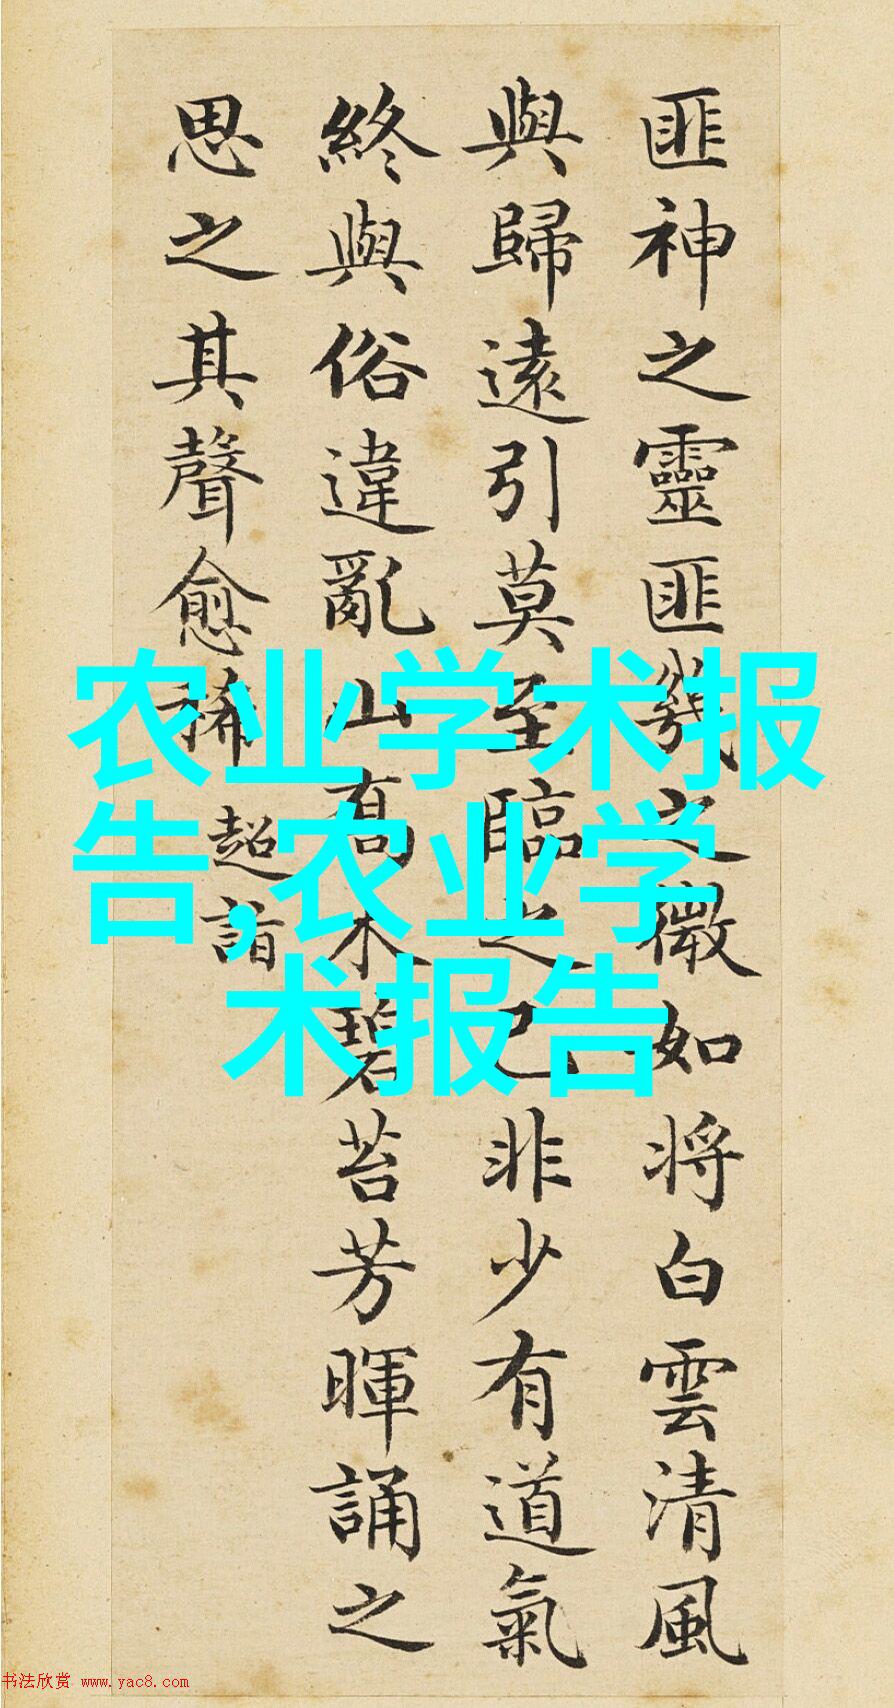 匪神之靈匪幾之微如将白雲清風
與歸遠引莫至臨之已非少有道氣
終與俗違亂山髙木碧苔芳暉誦之
思之其聲愈稀
超詣
农业学术报
告,农业学
术报告
书法欣赏 www.yac8.com